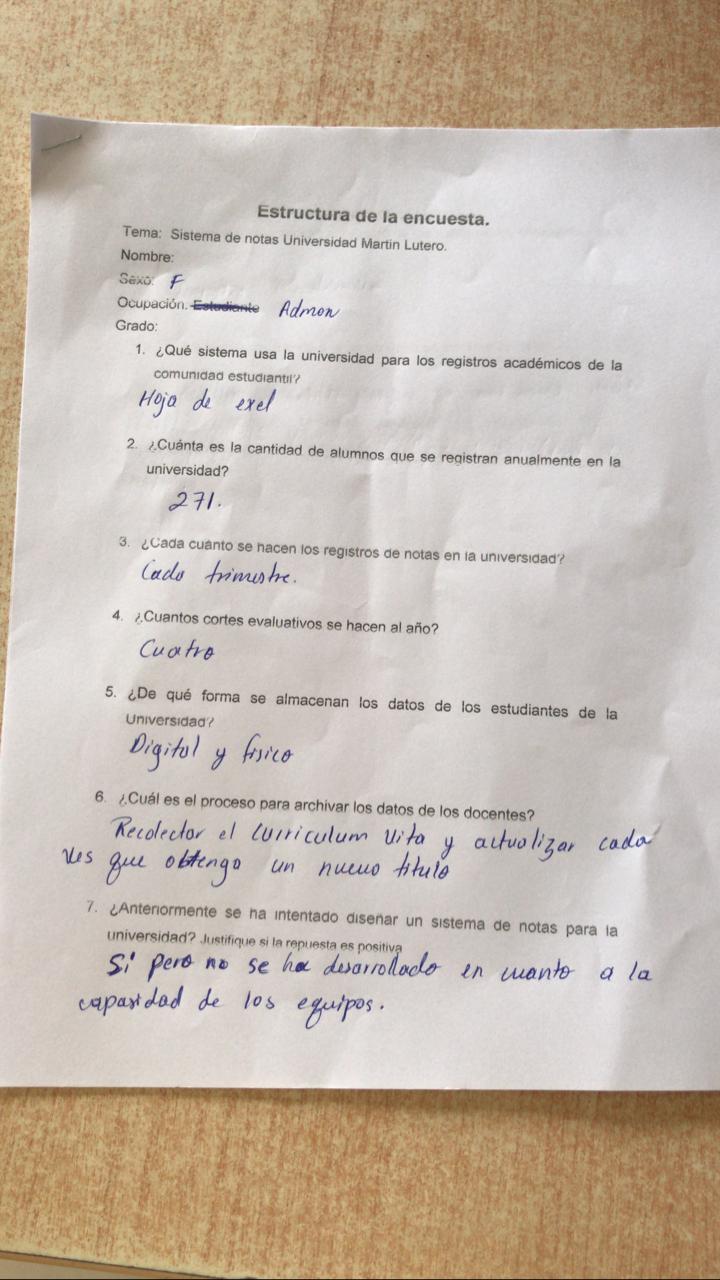 Estructura de la encuesta.
Tema: Sistema de notas Universidad Martin Lutero.
Nombre:
Sexo: F
Ocupación. Estudiante Admon
Grado:
1. ¿Qué sistema usa la universidad para los registros académicos de la
comunidad estudiantil?
Hoja de exel
2. ¿Cuánta es la cantidad de alumnos que se registran anualmente en la
universidad?
271.
3. ¿Cada cuanto se hacen los registros de notas en la universidad?
Cada trimestre.
4. ¿Cuantos cortes evaluativos se hacen al año?
Cuatro
5. ¿De qué forma se almacenan los datos de los estudiantes de la
Universidad?
Digital y fisico
6. ¿Cuál es el proceso para archivar los datos de los docentes?
Recolectar el curriculum Vita y actualizar cada
ves que obtenga un nuevo titulo
7. ¿Anteriormente se ha intentado diseñar un sistema de notas para la
universidad? Justifique si la repuesta es positiva
Si pero no se ha desarrollado en cuanto a la
capasidad de los equipos.